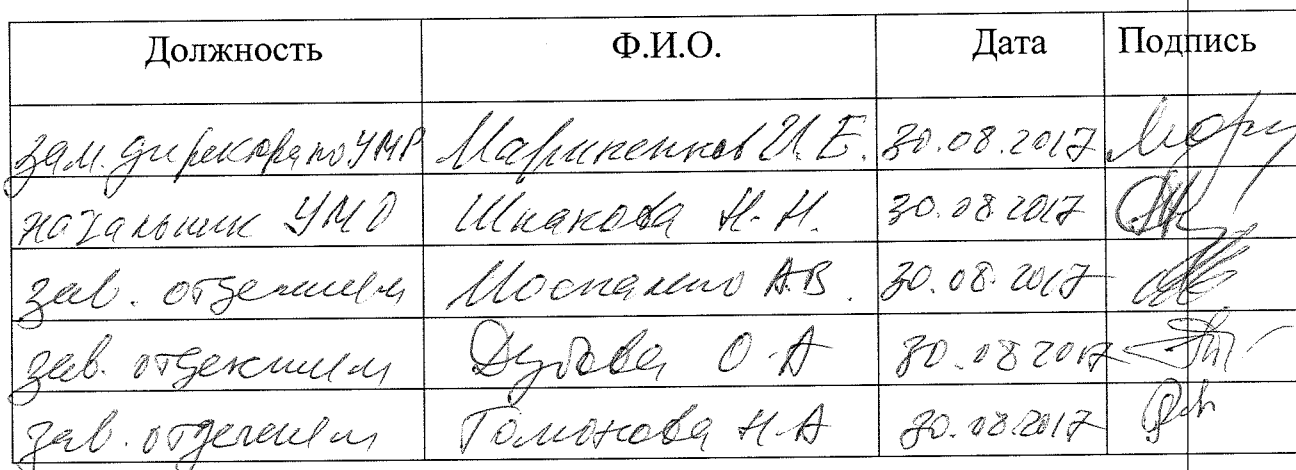 Должность Ф.И.О. Дата Подпись
зам. директора по УМР Мариненков И.Е. 30.08.2017
начальник УМО Шпакова Н.Н. 30.08.2017
зав. отделением А.В. 30.08.2017
зав. отделением Дубова О.А 30.08.2017
зав. отделением Гомонова Н.А 30.08.2017